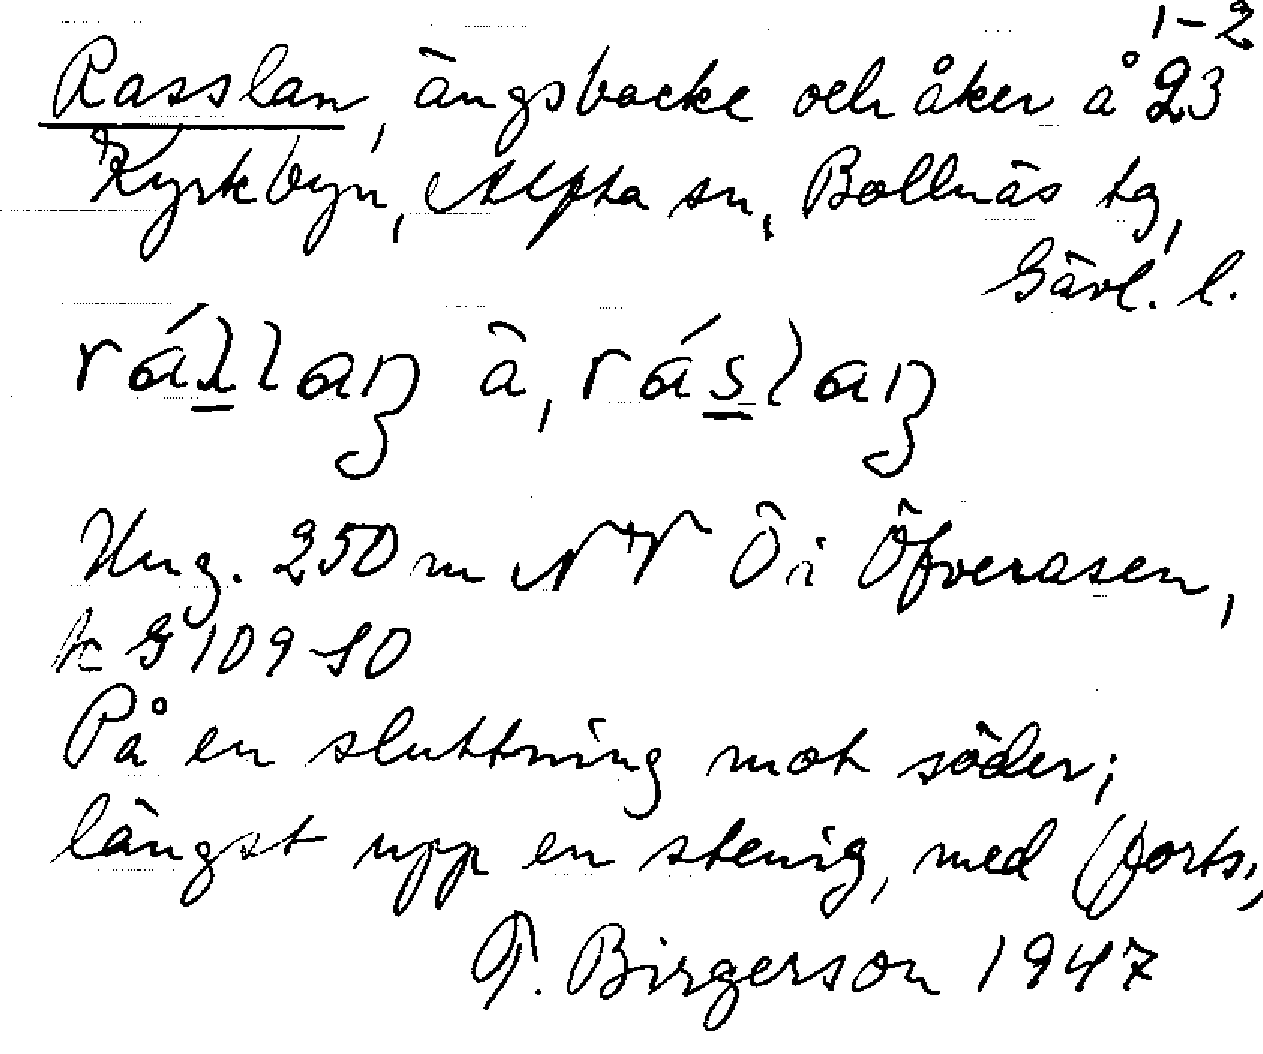 Rasslan, ängsbacke och åker å 23 1-2
Kyrkbyn, Alfta sn, Bollnäs tg,
Gävl. l.
ä,
Ung. 250 m NNV Ö i Öfveråsen,
G 109 80
På en sluttning mot söder;
längst upp en stenig, med (forts.,
T. Birgerson 1947